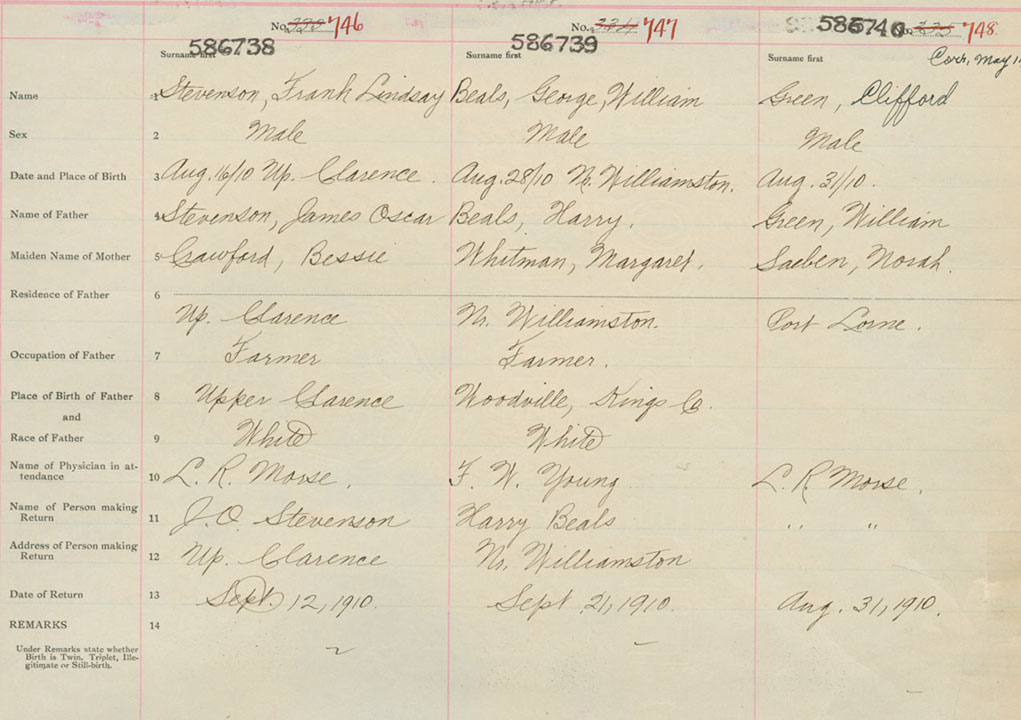 No. 333 746 No. 334 747 No. 335 748
586738 586739 586740
Surname first Surname first Surname first Corr, May
Name 1 Stevenson, Frank Lindsay Beals, George, William Green, Clifford
Sex 2 Male Male Male
Date and Place of Birth 3 Aug. 16/10 Up. Clarence. Aug. 28/10 Nr. Williamston. Aug. 31/10.
Name of Father 4 Stevenson, James Oscar Beals, Harry. Green, William
Maiden Name of Mother 5 Crawford, Bessie Whitman, Margaret. Saeben, Norah.
Residence of Father 6
Up. Clarence Nr. Williamston. Port Lorne.
Occupation of Father 7 Farmer Farmer.
Place of Birth of Father 8 Upper Clarence Woodville, Kings Co.
and
Race of Father 9 White White
Name of Physician in at-
tendance 10 L. R. Morse. F. W. Young L. R. Morse.
Name of Person making
Return 11 J. O. Stevenson Harry Beals " "
Address of Person making
Return 12 Up. Clarence Nr. Williamston
Date of Return 13 Sept. 12, 1910. Sept. 21, 1910. Aug. 31, 1910.
REMARKS 14
Under Remarks state whether
Birth is Twin. Triplet, Ille-
gitimate or Still-birth.